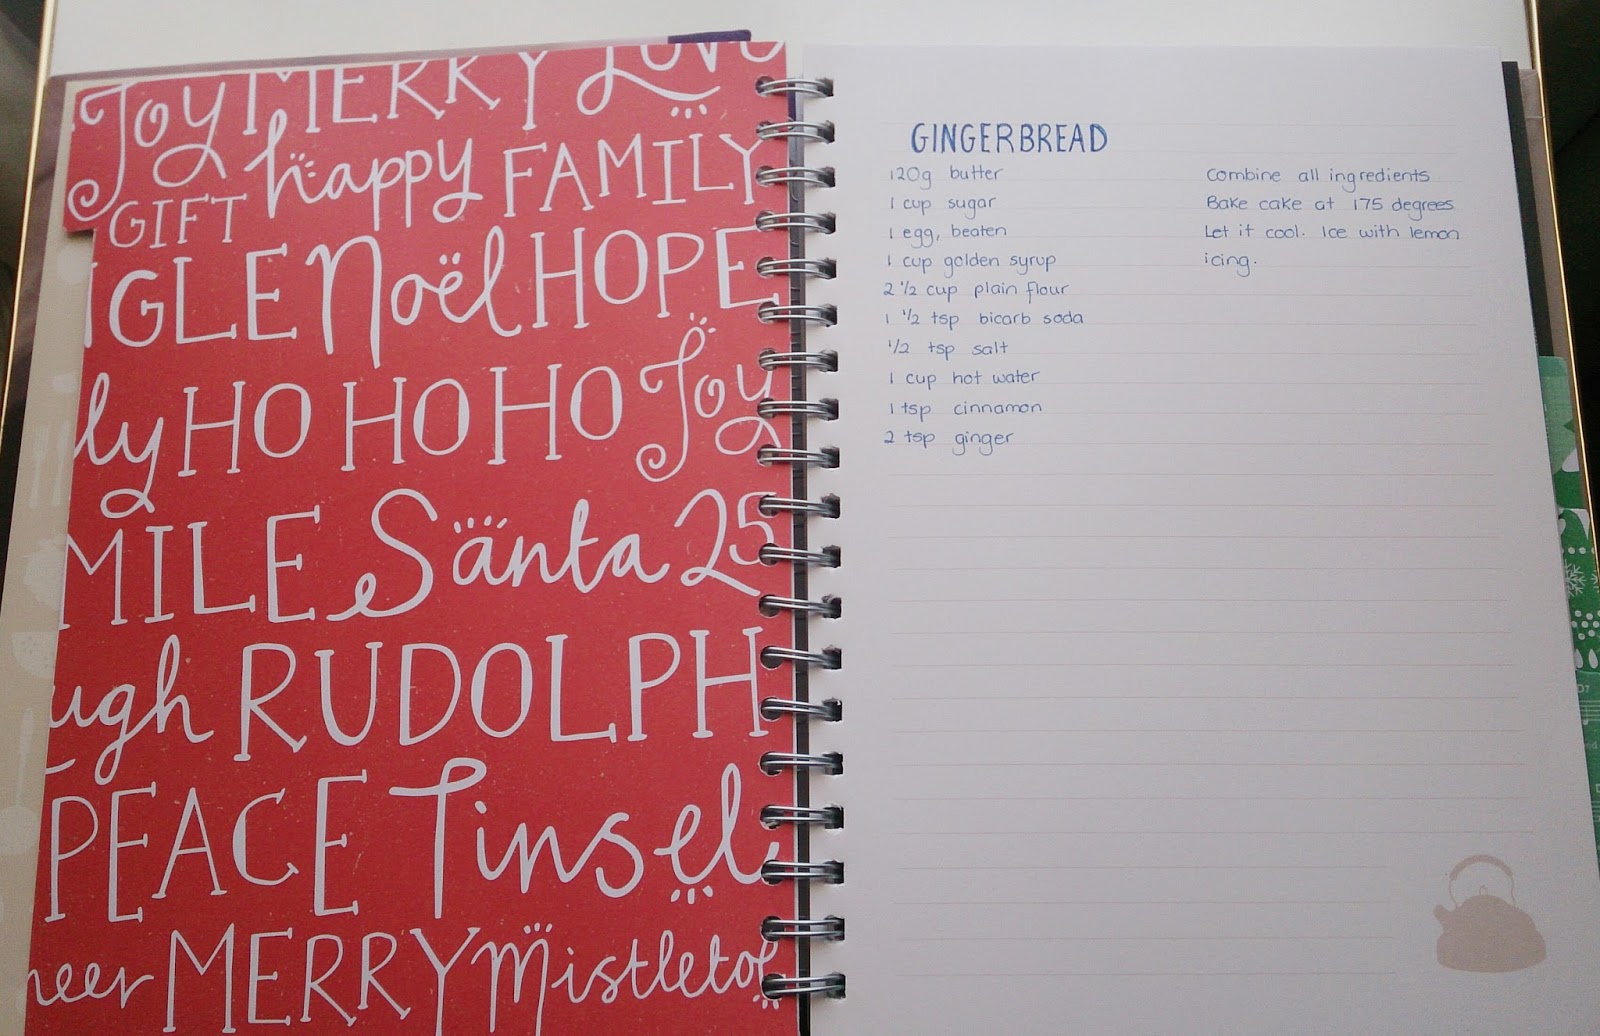 Joy MERRY Love
GIFT happy FAMILY
GLE Noël HOPE
ly HO HO HO Joy
MILE Santa 25
ugh RUDOLPH
PEACE Tinsel
heer MERRY Mistletoe
GINGERBREAD
120g butter
1 cup sugar
1 egg, beaten
1 cup golden syrup
2 1/2 cup plain flour
1 1/2 tsp bicarb soda
1/2 tsp salt
1 cup hot water
1 tsp cinnamon
2 tsp ginger
Combine all ingredients
Bake cake at 175 degrees
Let it cool. Ice with lemon
icing.